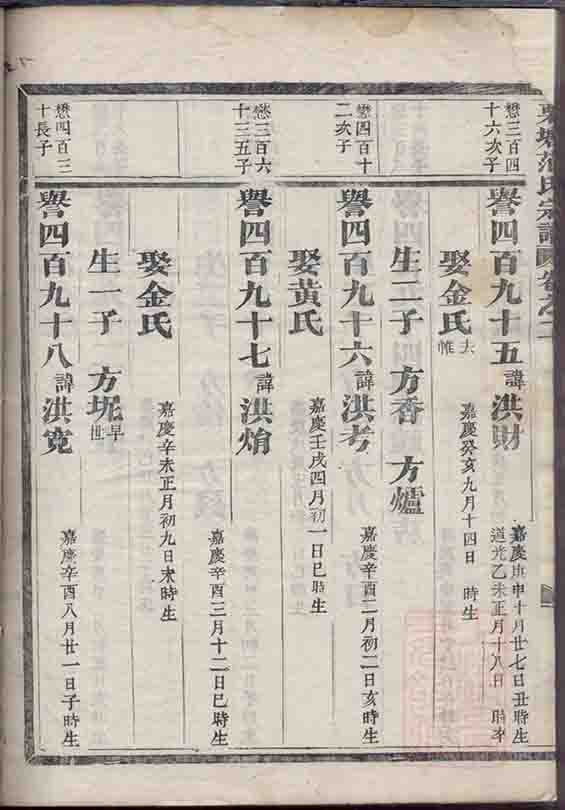 宗譜
卷之二
懋三百四
十六次子
譽四百九十五諱洪財
嘉慶庚申十月廿七日丑時生
道光乙未正月十八日　時卒
娶金氏
去
帷
嘉慶癸亥九月十四日　時生
生二子　方香　方爐
懋四百十
二次子
譽四百九十六諱洪考
嘉慶辛酉二月初二日亥時生
娶黃氏
嘉慶壬戌四月初一日巳時生
懋三百六
十三五子
譽四百九十七諱洪焇
嘉慶辛酉三月十二日巳時生
娶金氏
嘉慶辛未正月初九日未時生
生一子　方坭早世
懋四百三
十長子
譽四百九十八諱洪寬
嘉慶辛酉八月廿一日子時生